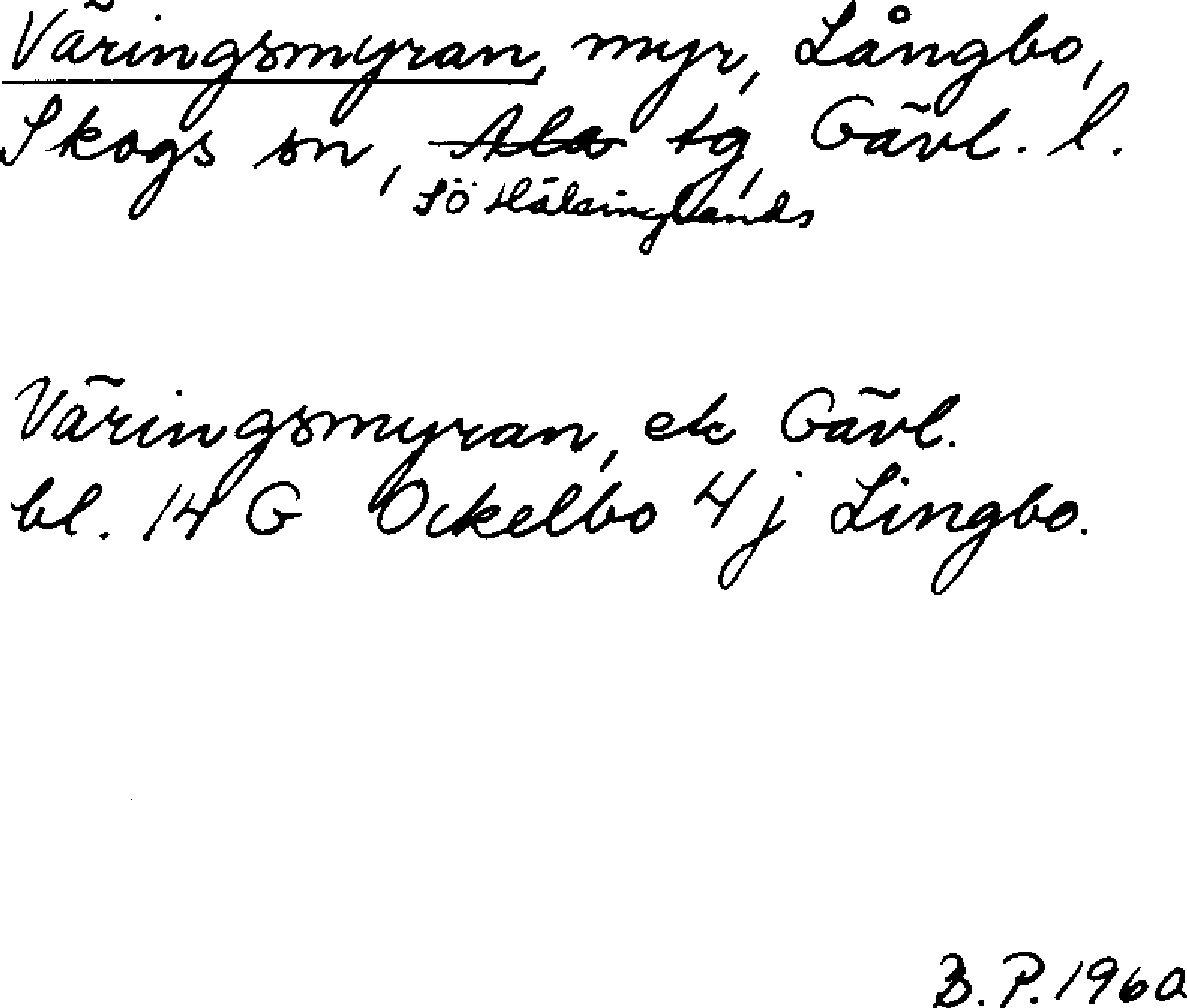 Väringsmyran, myr, Långbo,
Skogs sn, Ala tg, Gävl. l.
Sö Hälsinglands
Väringsmyran, ek Gävl.
bl. 14 G Ockelbo 4 j Lingbo.
B. P. 1960